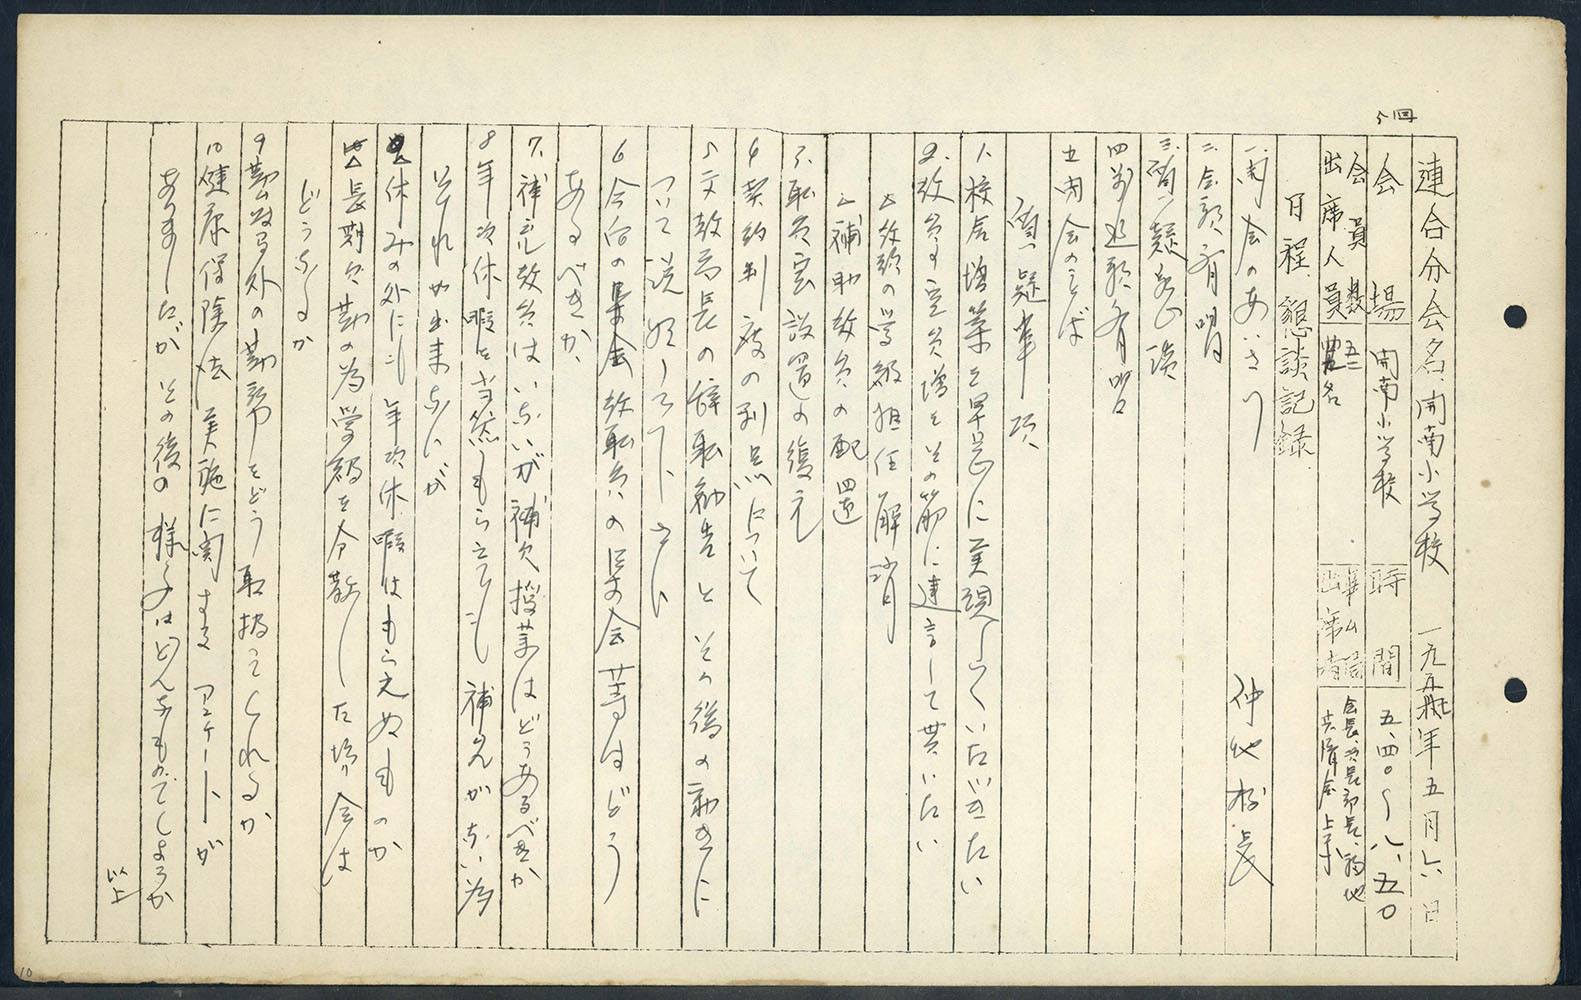 5回
連合分会名 開南小学校 一九五七年五月六日
会場 開南小学校 時間 五、四〇〜八、五〇
会員数 五二
出席人員 四五名
事ム局出席者 会長、次長、部長、福地
共済会 上予
日程、懇談記録
一、開会のあいさつ 仲地校長
二、会務説明
三、質疑応談
四、対退職説明
五、閉会のことば
質疑事項
1、校舎増築を早急に実現していただきたい
2、教員の定員増をその筋に進言して貰いたい
△教頭の学級担任解消
△補助教員の配置
3、職員室設置の復元
4、契約制度の利点について
5、文教局長の辞職勧告とその後の動きに
ついて説明して下さい
6、今回の集会教職員の集会等はどう
あるべきか、
7、補充教員はいないが補欠授業はどうあるべきか
8、年次休暇を当然もらえても補充がない為
それが出来ないが
△休みの外にも年次休暇はもらえぬものか
△長期欠勤の為学級を分散した場合は
どうなるか
9、勤務時外の勤務をどう取扱ってくれるか
10、健康保険法実施に関するアンケートが
ありましたがその後の様子はどんなものでしょうか
以上
10